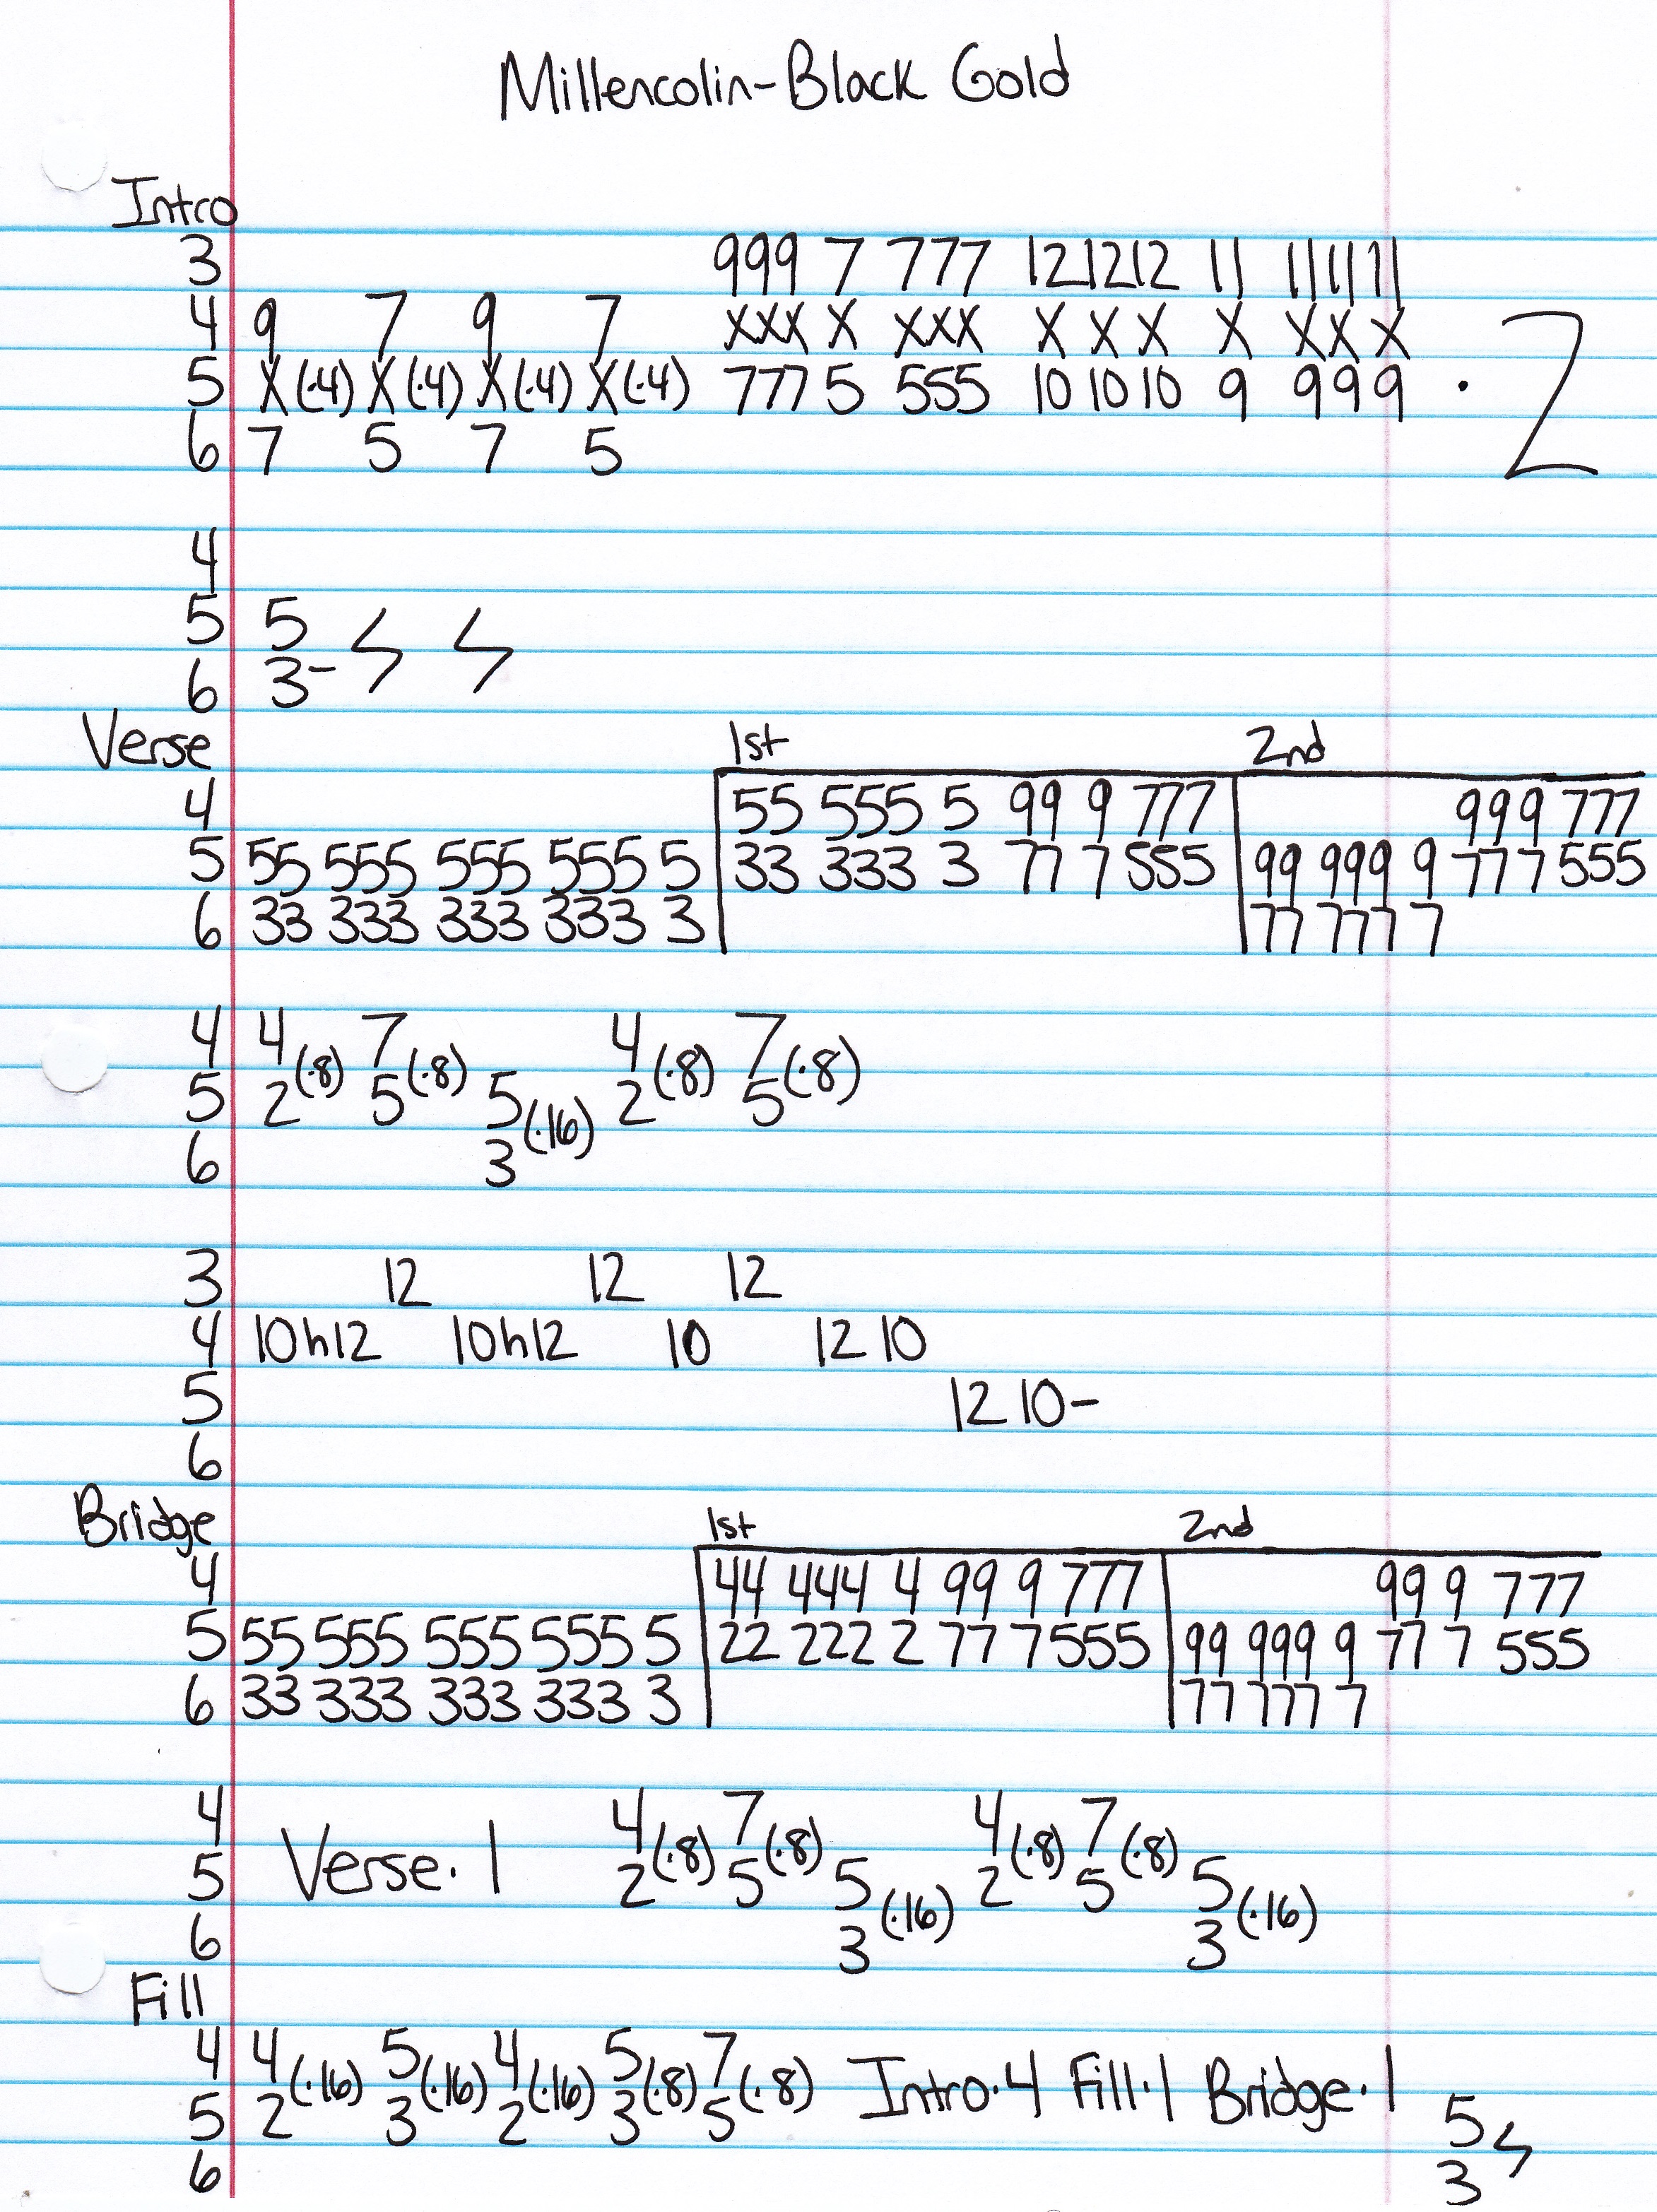 Millencolin-Black Gold
Intro
3 999 7 777 121212 11 111111
4 9 7 9 7 xxx x xxx x x x x x x x
5 x(·4) x(·4) x(·4) x(·4) 777 5 555 10 10 10 9 9 9 9 · 2
6 7 5 7 5
4
5 5
6 3-
Verse 1st 2nd
4 55 555 5 99 9 777 999 777
5 55 555 555 555 5 33 333 3 77 7 555 99 999 9 777 555
6 33 333 333 333 3 77 777 7
4 4 (·8) 7 (·8) 4 (·8) 7 (·8)
5 2 5 5 (·16) 2 5
6 3
3 12 12 12
4 10h12 10h12 10 12 10
5 12 10-
6
Bridge 1st 2nd
4 44 444 4 99 9 777 99 9 777
5 55 555 555 555 5 22 222 2 77 7 555 99 999 9 77 7 555
6 33 333 333 333 3 77 777 7
4 4 (·8) 7 (·8) 4 (·8) 7 (·8)
5 Verse· 1 2 5 5 (·16) 2 5 5 (·16)
6 3 3
Fill
4 4 (·16) 5 (·16) 4 (·16) 5 (·8) 7 (·8) Intro·4 Fill·1 Bridge·1
5 2 3 2 3 5 5
6 3